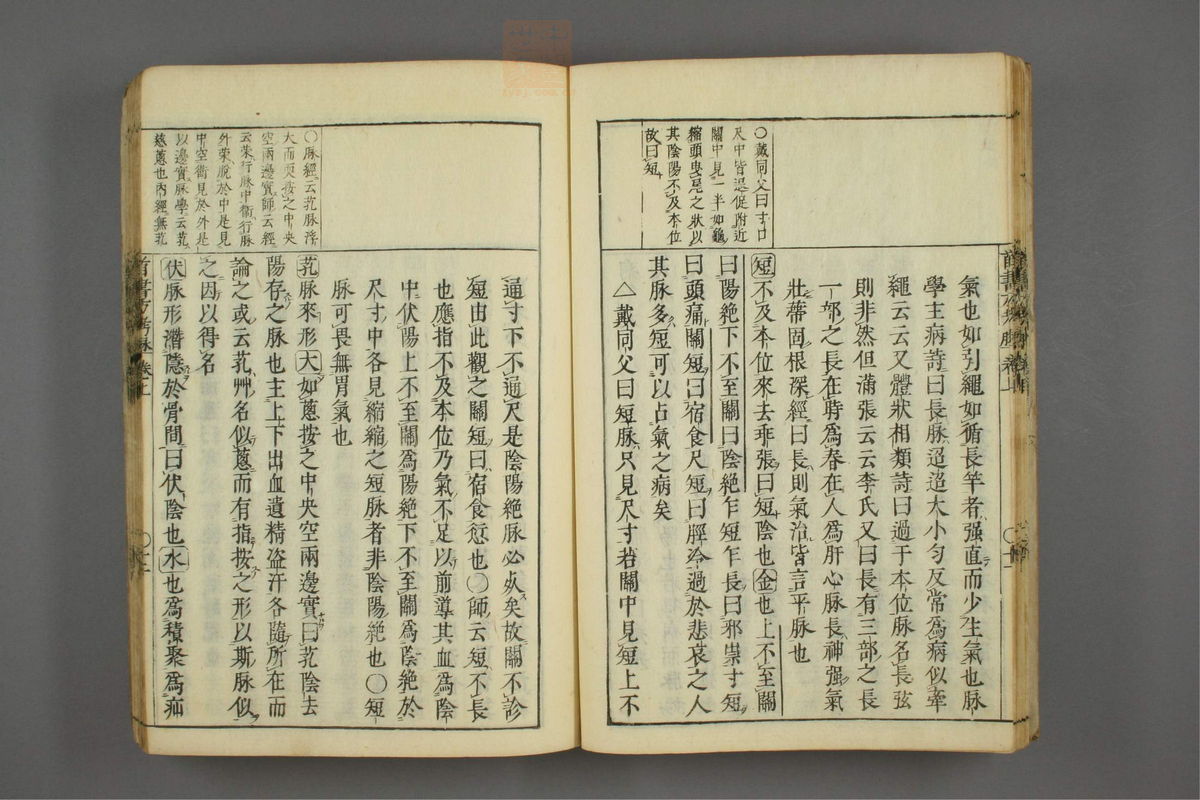 氣也如引繩如循長竿者强直而少生氣也脉
學主病詩曰長脉迢迢大小勻反常爲病似牽
繩云云又體狀相類詩曰過于本位脉名長弦
則非然但滿張云云李氏又曰長有三部之長
一部之長在時爲春在人爲肝心脉長神强氣
壯蒂固根深經曰長則氣治皆言平脉也
短不及本位來去乖張曰短陰也金也上不至關
曰陽絶下不至關曰陰絶乍短乍長曰邪祟寸短
曰頭痛關短曰宿食尺短曰脛冷過於悲哀之人
其脉多短可以占氣之病矣
△戴同父曰短脉只見尺寸若關中見短上不
〇戴同父曰寸口
尺中皆退促附近
關中見一半如龜
縮頭曳尾之狀以
其陰陽不及本位
故曰短
通寸下不通尺是陰陽絶脉必死矣故關不診
短由此觀之關短曰宿食愆也〇師云短不長
也應指不及本位乃氣不足以前導其血爲陰
中伏陽上不至關爲陽絶下不至關爲陰絶於
尺寸中各見縮縮之短脉者非陰陽絶也〇短
脉可畏無胃氣也
芤脉來形大如蔥按之中央空兩邊實曰芤陰去
陽存之脉也主上下出血遺精盗汗各隨所在而
論之或云芤艸名似蔥而有指按之形以斯脉似
之因以得名
伏脉形潛隱於骨間曰伏陰也水也爲積聚爲疝
〇脉經云芤脉浮
大而耎按之中央
空兩邊實師云經
云榮行脉中衞行脉
外榮脫於中是見
中空衞見於外是
以邊實脉學云芤
慈蔥也內經無芤